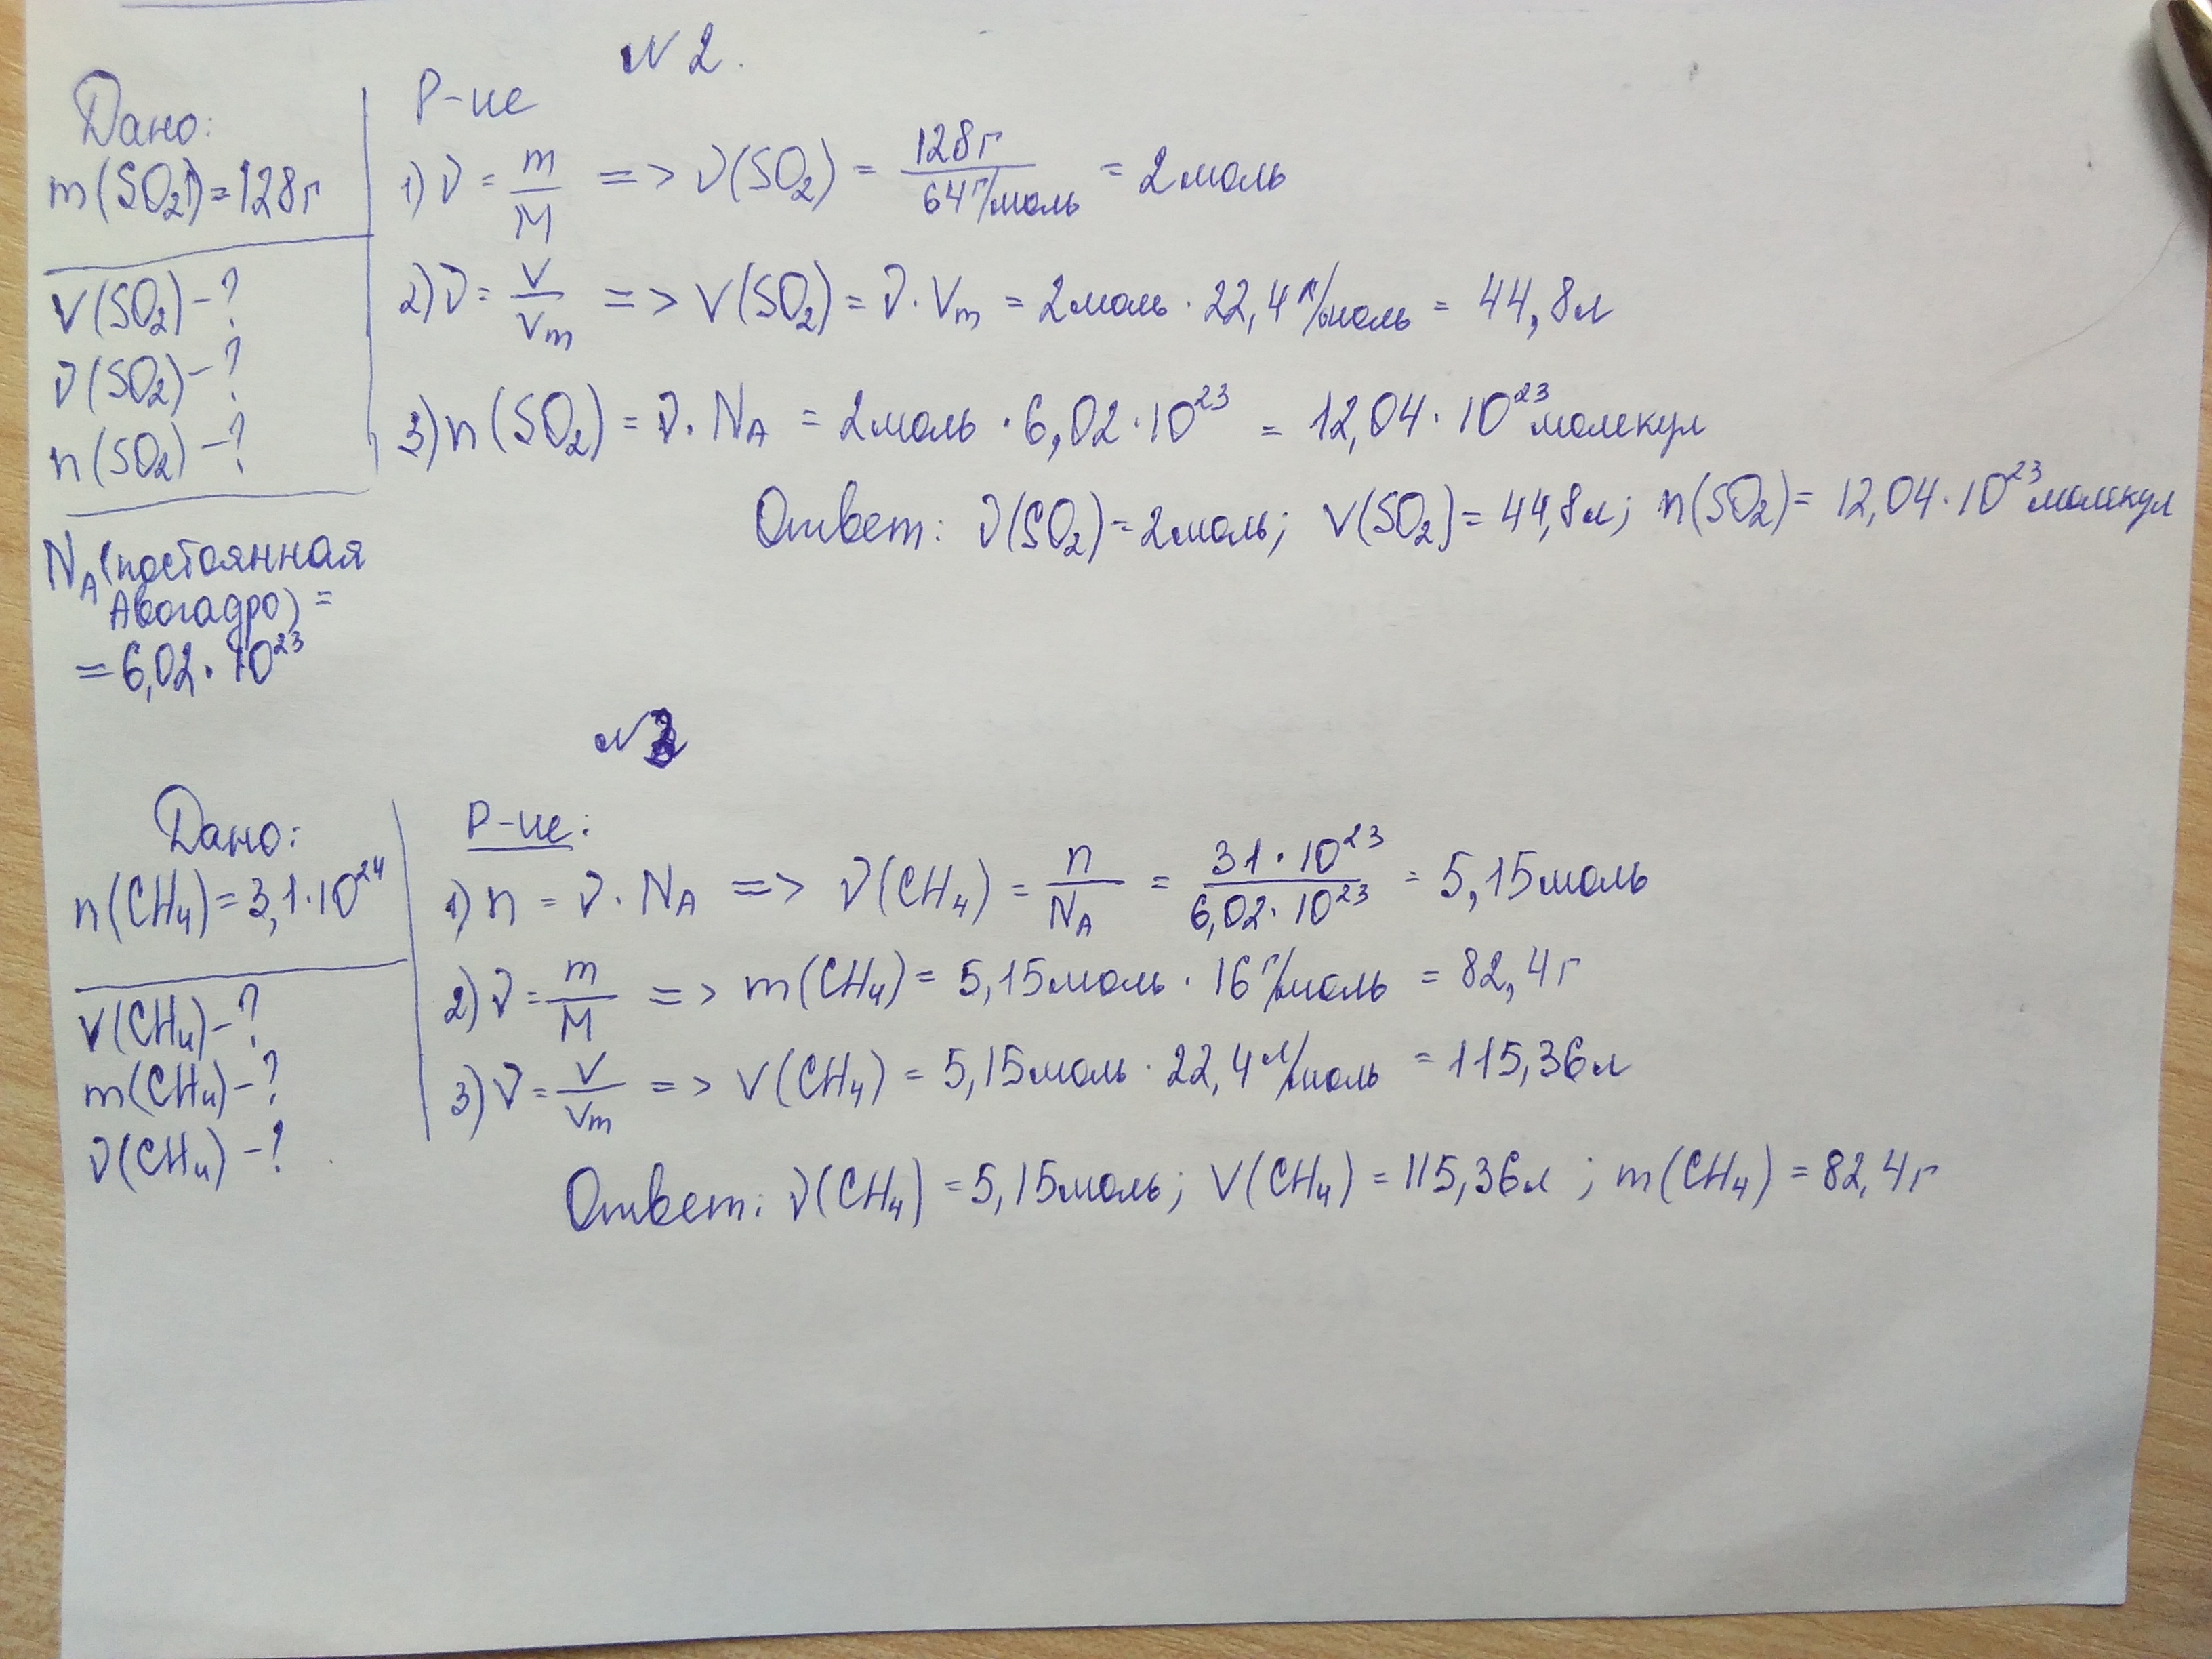 N 2.
Дано:
m(SO₂) = 128 г
V(SO₂) - ?
ν(SO₂) - ?
n(SO₂) - ?
N_A (постоянная
Авогадро) =
= 6,02 · 10²³
Р-ие
1) ν = m/M => ν(SO₂) = 128 г / 64 г/моль = 2 моль
2) ν = V/Vm => V(SO₂) = ν · Vm = 2 моль · 22,4 л/моль = 44,8 л
3) n(SO₂) = ν · N_A = 2 моль · 6,02 · 10²³ = 12,04 · 10²³ молекул
Ответ: ν(SO₂) = 2 моль; V(SO₂) = 44,8 л; n(SO₂) = 12,04 · 10²³ молекул
N 3
Дано:
n(CH₄) = 3,1 · 10²⁴
V(CH₄) - ?
m(CH₄) - ?
ν(CH₄) - ?
Р-ие:
1) n = ν · N_A => ν(CH₄) = n/N_A = 31 · 10²³ / 6,02 · 10²³ = 5,15 моль
2) ν = m/M => m(CH₄) = 5,15 моль · 16 г/моль = 82,4 г
3) ν = V/Vm => V(CH₄) = 5,15 моль · 22,4 л/моль = 115,36 л
Ответ: ν(CH₄) = 5,15 моль; V(CH₄) = 115,36 л; m(CH₄) = 82,4 г